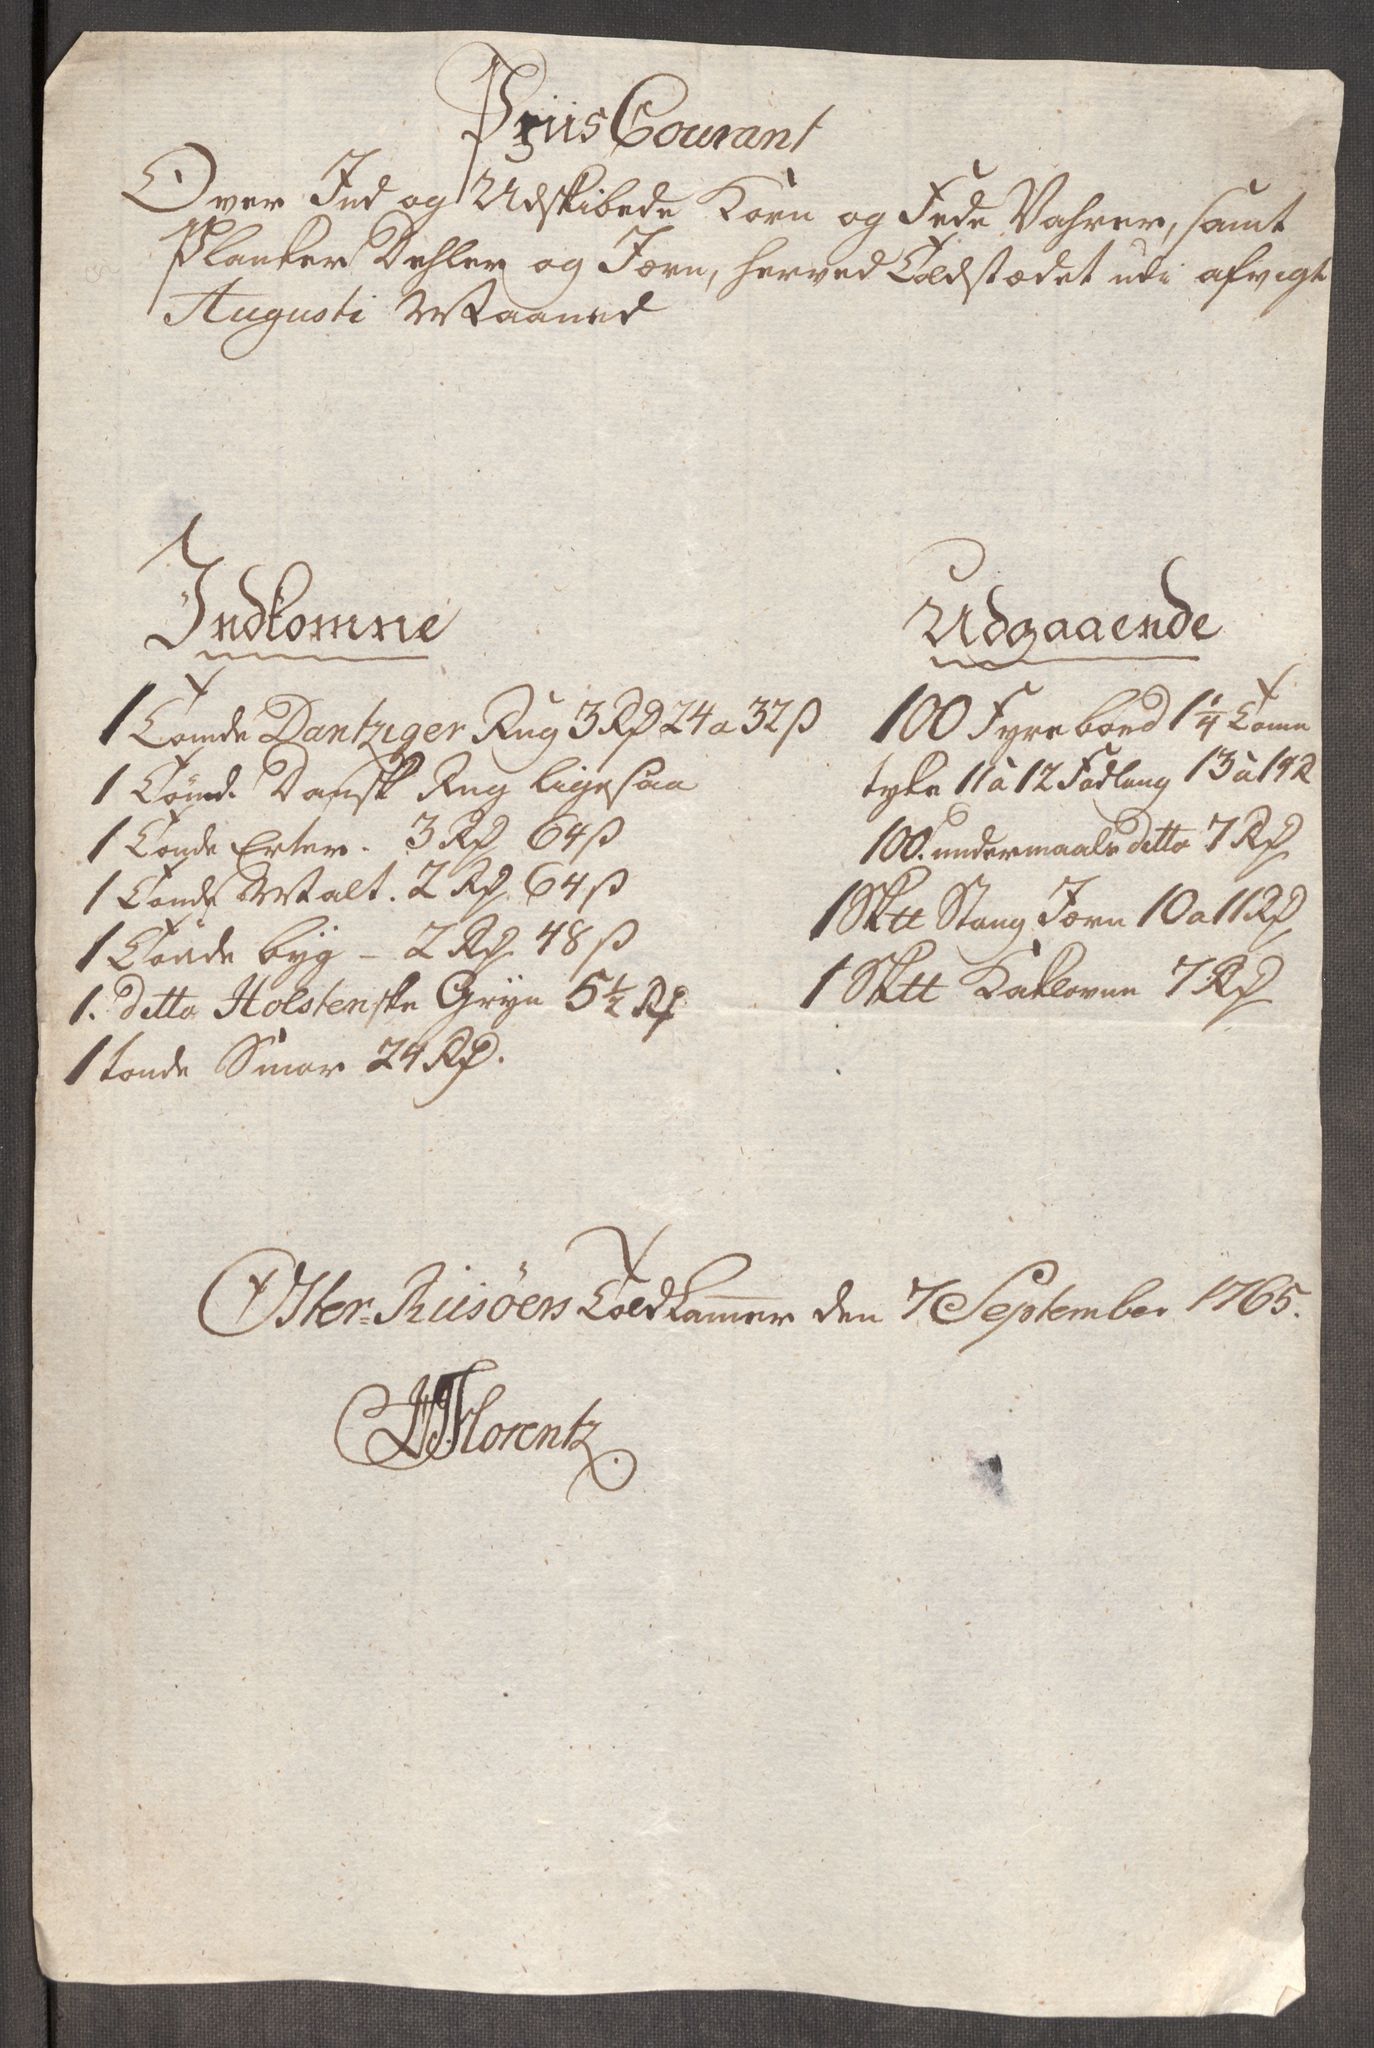 Priis Courant
Over Ind og Udskibede Korn og Fede Vahrer, samt
Planker Dehler og Jærn, herved Toldstædet udi afvigte
Augusti Maaned
Indkomne
1 Tønde Dantziger Rug 3 Rd 24 a 32 ß
1 Tønd. Dansk Rug ligesaa
1 Tønde Erter. 3 Rd 64 ß
1 Tønde Malt. 2 Rd. 64 ß
1 Tønde byg - 2 Rd. 48 ß
1. ditto Holstenske Gryn 5 1/2 Rd
1 tønde Smør 24 Rd.
Udgaaende
100 Fyrebord 1 1/4 Tome
tyke 11 à 12 Fod lang 13 à 14 R
100. undermaals ditto 7 Rd
1 Sktt Stang Jærn 10 a 11 Rd
1 Sktt Kaklovne 7 Rd
Øster-Riisøers Toldkammer den 7 September 1765.
Florentz